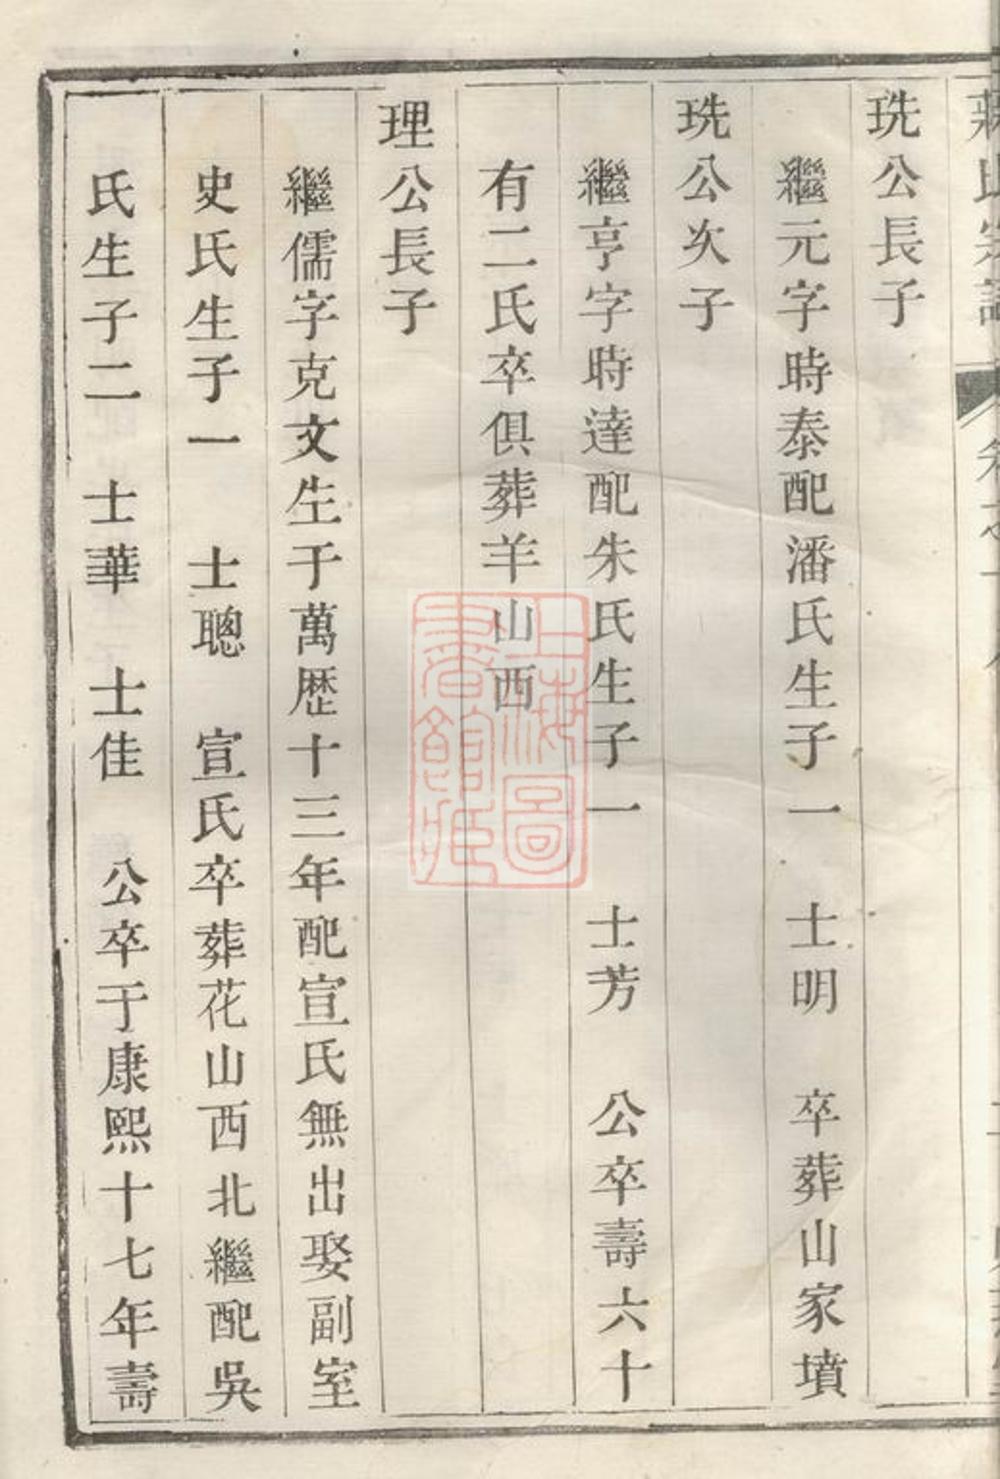 珗公長子
繼元字時泰配潘氏生子一　士明　卒葬山家墳
珗公次子
繼亨字時達配朱氏生子一　士芳　公卒壽六十
有二氏卒俱葬羊山西
理公長子
繼儒字克文生于萬歷十三年配宣氏無出娶副室
史氏生子一　士聰　宣氏卒葬花山西北繼配吳
氏生子二　士華　士佳　公卒于康熙十七年壽
上海圖書館藏